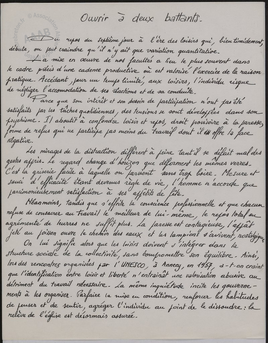 Ouvrir à deux battants.
Du repos au septième jour à l'ère des loisirs qui, bientôt
débute, on peut craindre qu'il n'y ait que variation quantitative.
La mise en œuvre de nos facultés a lieu le plus souvent dans
le cadre de cadence productive où est valorisé l'exercice de la raison
pratique. Accédant, pour un temps limité, aux loisirs, l'individu risque
de négliger l'accentuation de ses élections et de sa conduite.
Parce que son intérêt et son besoin de participation n'ont pas été
satisfaits par les tâches des tensions se sont développées dans son
psychisme. Il aboutit à confondre loisir et repos, droit et à la paresse,
forme de refus qui ne participe pas moins du travail dont il offre la face
négative.
Les mirages de la distraction diffèrent à peine, tant il se défait mal des
gestes appris. Le regard change d'horizon que déforment les mêmes verres.
C'est la guerre froide à laquelle on parvient sans trop boire. Mesure et
de l'efficacité étant devenus règle de vie, l'homme n'accorde que
parcimonieusement satisfaction à ses appétits de fête.
Néanmoins, tandis que s'effrite la conscience professionnelle et que chacun
refuse de consacrer au travail le meilleur de lui-même, le repos total ou
agrémenté de leurres ne suffit plus. La paresse est contagieuse, l'appétit
de jouir le chemin des eaux et les lampions s'avivent,
On lui signifie dès que les loisirs doivent s'intégrer dans la
structure sociale de la collectivité, sans compromettre son équilibre. Ainsi,
lors des rencontres organisées par l'UNESCO, à Annecy, en 1957, a-t-on craint
que l'identification entre loisir et liberté n'entraînât une valorisation abusive au
détriment du travail nécessaire. La même inquiétude incite les gouvernements
à les organiser. Parfaire la mise en condition, renforcer les habitudes
de penser et de sentir, agréger l'individu au point de le dissoudre : la
relève de l'église est désormais assurée.